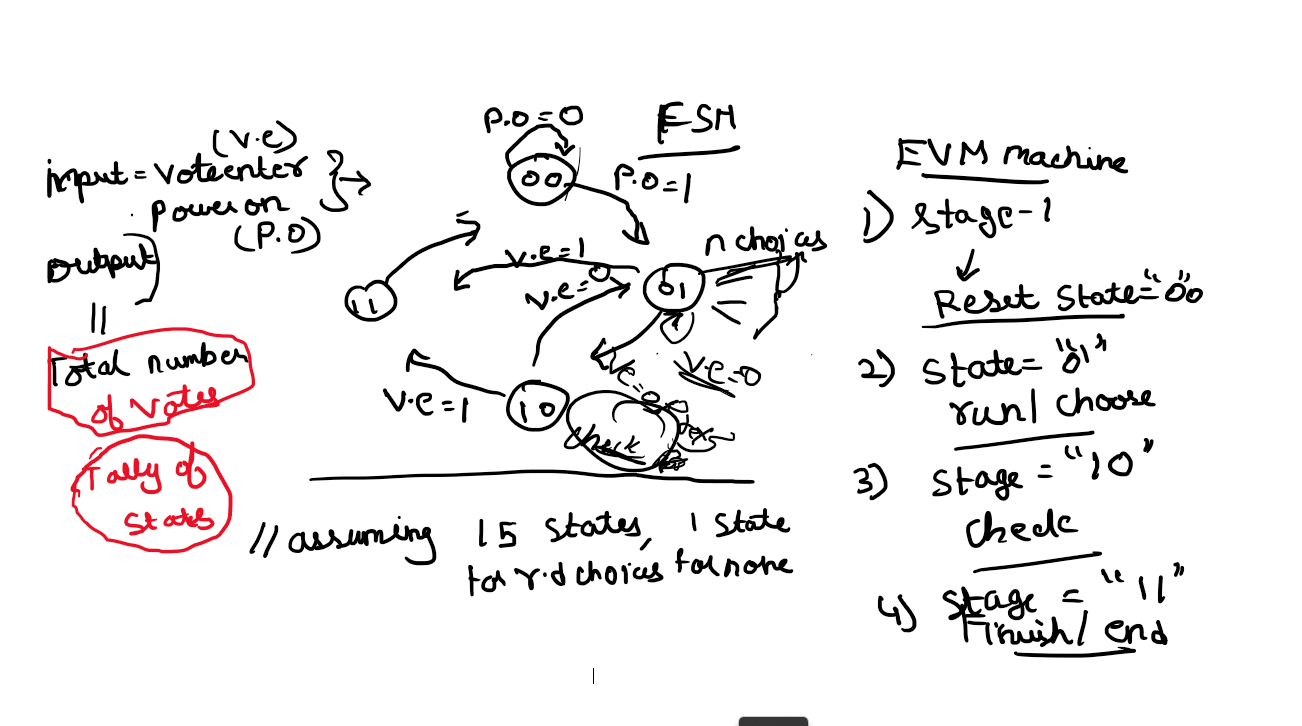 (V.e)
input = Voteenter
Power on
(P.O)
Output
Total number
of Votes
Tally of
States
P.O = 0
FSM
00
P.O = 1
n choices
V.e = 1
V.e = 0
01
11
V.e = 0
V.e = 1
10
check
// assuming 15 states, 1 state
for r.d choices for none
EVM machine
1) stage - 1
Reset State = "00"
2) state = "01"
run/ choose
3) stage = "10"
check
4) stage = "11"
Finish/ end